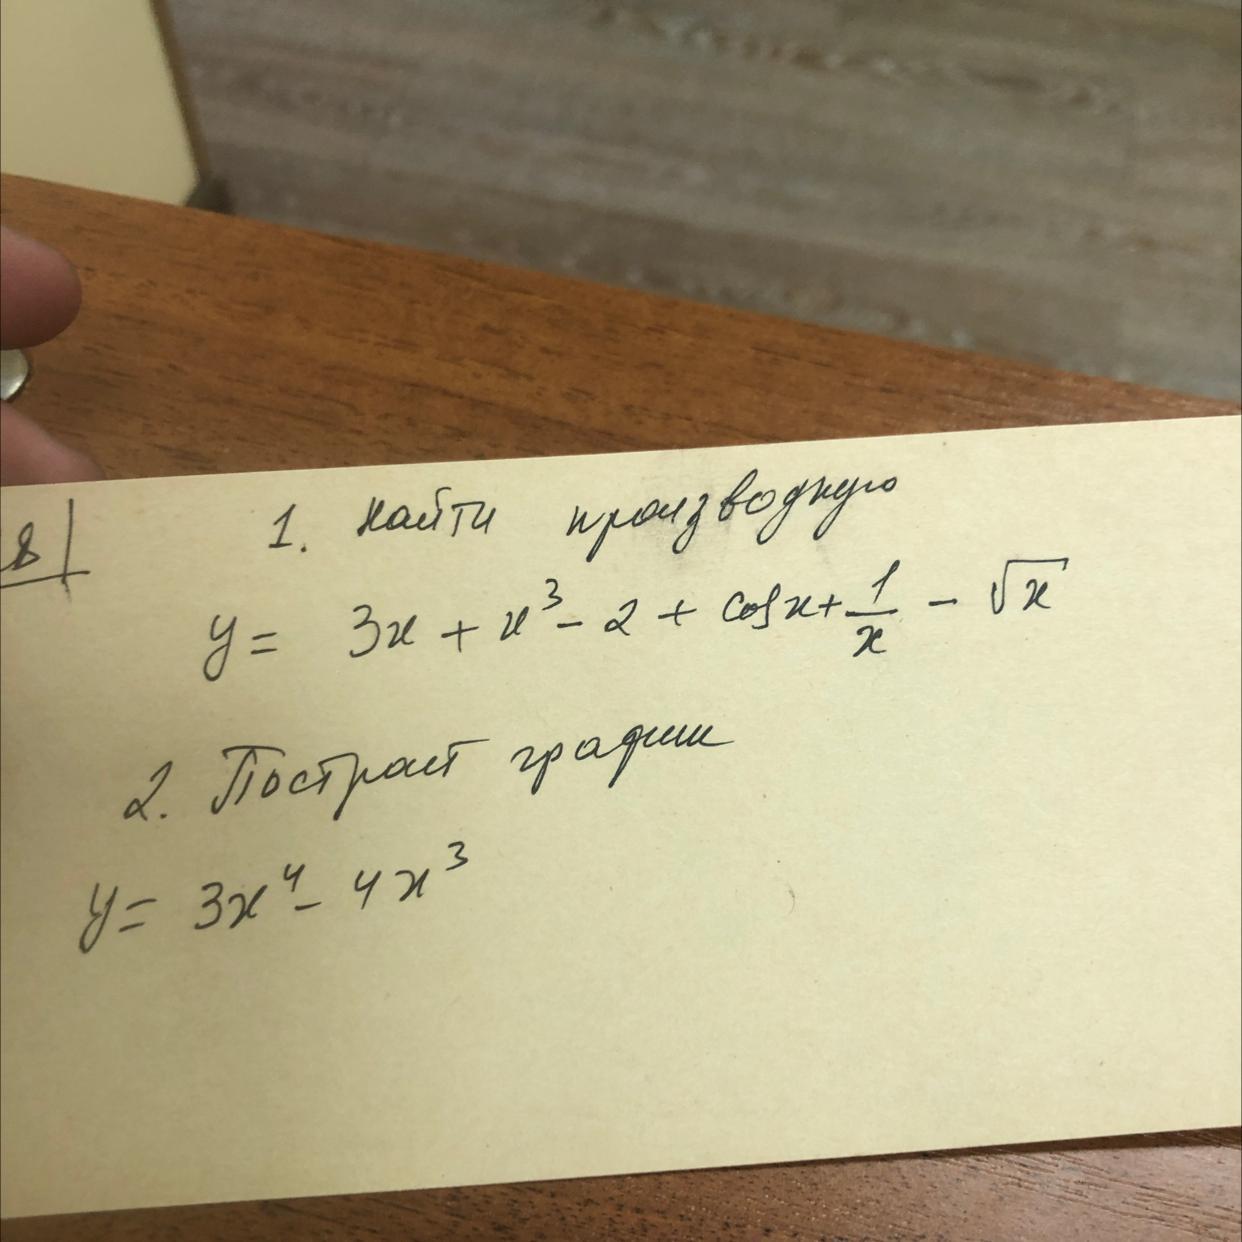 8
1. Найти производную
y = 3x + x³ - 2 + cos x + 1/x - √x
2. Построит график
y = 3x⁴ - 4x³